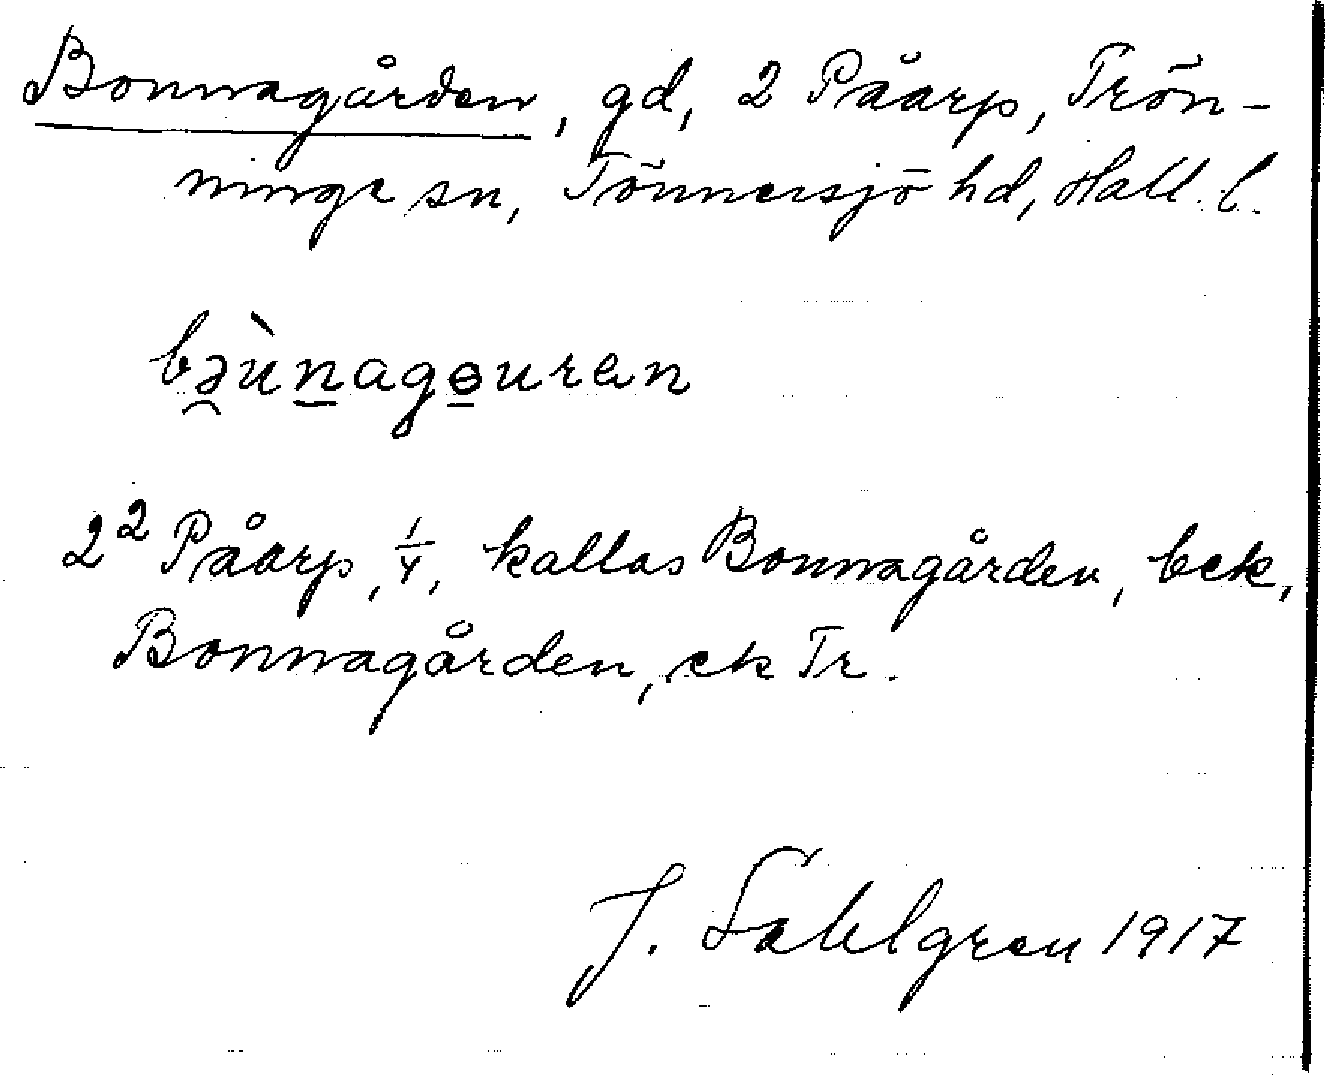 Bonnagården, gd, 2 Påarp, Trön-
ninge sn, Tönnersjö hd, Hall. l.
bɜùn̲agɵ̲uren
2² Påarp, 1/4, kallas Bonnagården, bek,
Bonnagården, ek Tr.
J. Sahlgren 1917